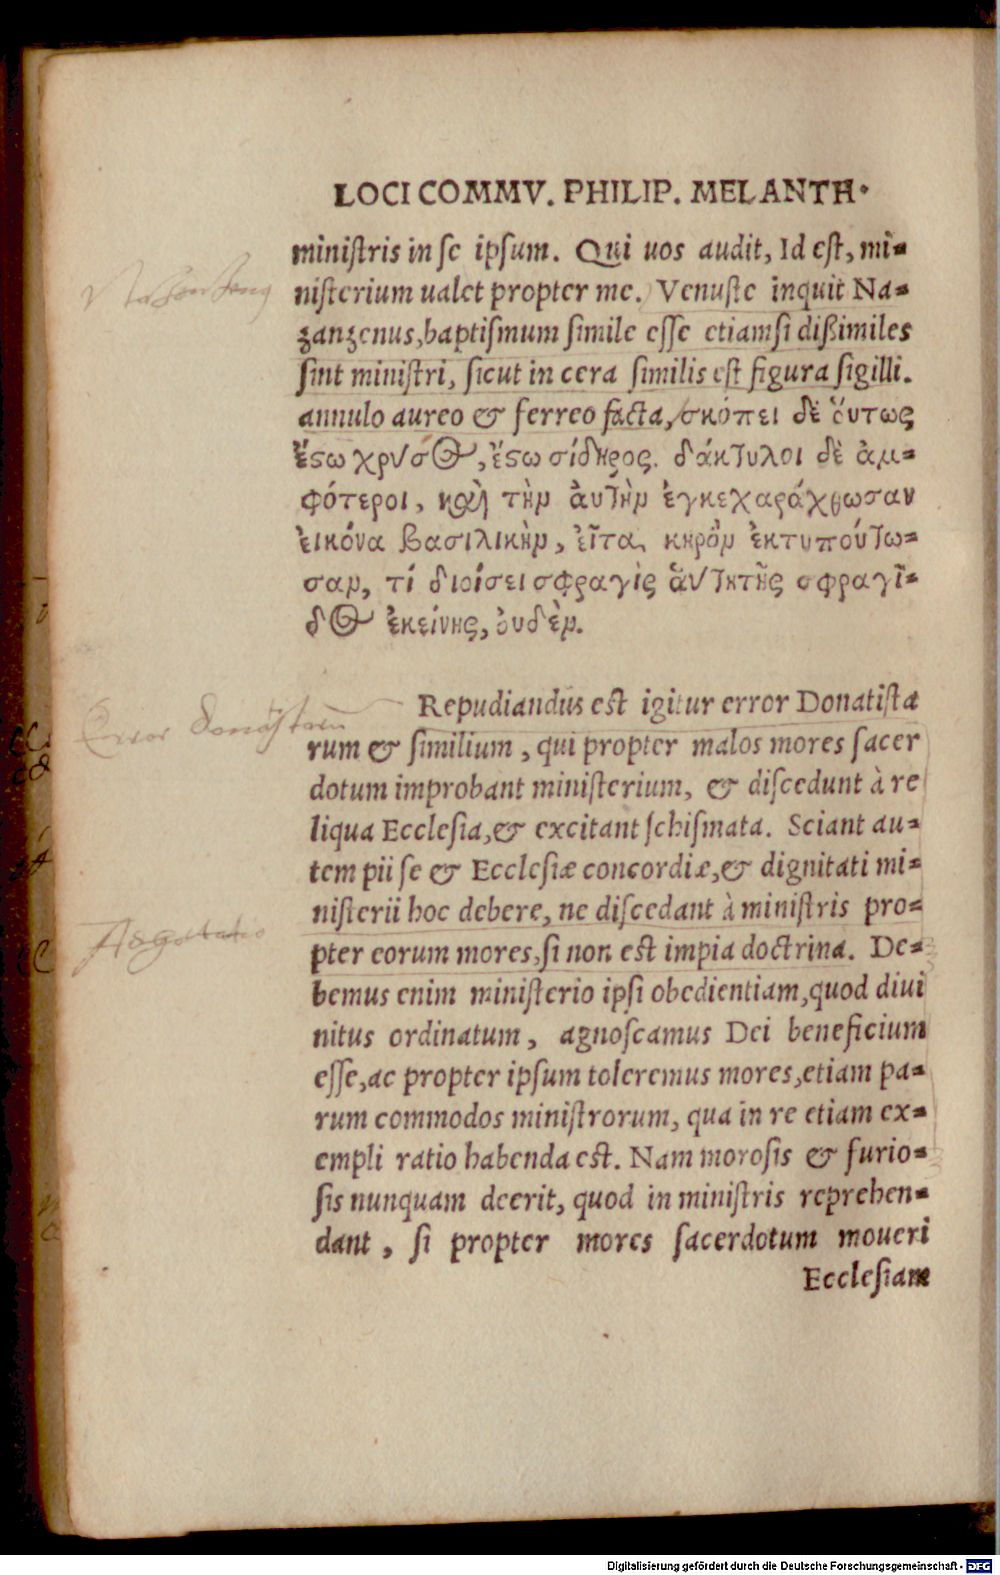 LOCI COMMV. PHILIP. MELANTH.
miniſtris in ſe ipſum. Qui uos audit, Id eſt, mi=
niſterium ualet propter me. Venuste inquit Na=
zanzenus, baptiſmum ſimile eſſe etiamſi dißimiles
ſint miniſtri, ſicut in cera ſimilis est figura ſigilli.
annulo aureo & ferreo facta, σκόπει δὲ ὅυτως
ἔϛω χρυσὸς, ἔϛω σίδηρος. δάκτυλοι δὲ ἀμ=
φότεροι, καὶ τὴν ἀυτὴν ἐγκεχαράχθωσαν
ἐικόνα βασιλικὴν, ἐῖτα κηρὸν ἐκτυπούτω=
σαν, τί διοίσει σφραγὶς ἅυτη τῆς σφραγῖ=
δος ἐκείνης, ὀυδὲν.
Error Donatistarum
Repudiandus est igitur error Donatiſta
rum & ſimilium, qui propter malos mores ſacer
dotum improbant miniſterium, & diſcedunt à re
liqua Eccleſia, & excitant ſchiſmata. Sciant au=
tem pii ſe & Eccleſiæ concordiæ, & dignitati mi=
niſterii hoc debere, ne diſcedant à miniſtris pro=
pter eorum mores, ſi non est impia doctrina. De=
bemus enim miniſterio ipſi obedientiam, quod diui
nitus ordinatum, agnoſcamus Dei beneficium
eſſe, ac propter ipſum toleremus mores, etiam pa=
rum commodos miniſtrorum, qua in re etiam ex=
empli ratio habenda est. Nam moroſis & furio=
ſis nunquam deerit, quod in miniſtris reprehen=
dant, ſi propter mores ſacerdotum moueri
Eccleſiam
Digitalisierung gefördert durch die Deutsche Forschungsgemeinschaft - DFG